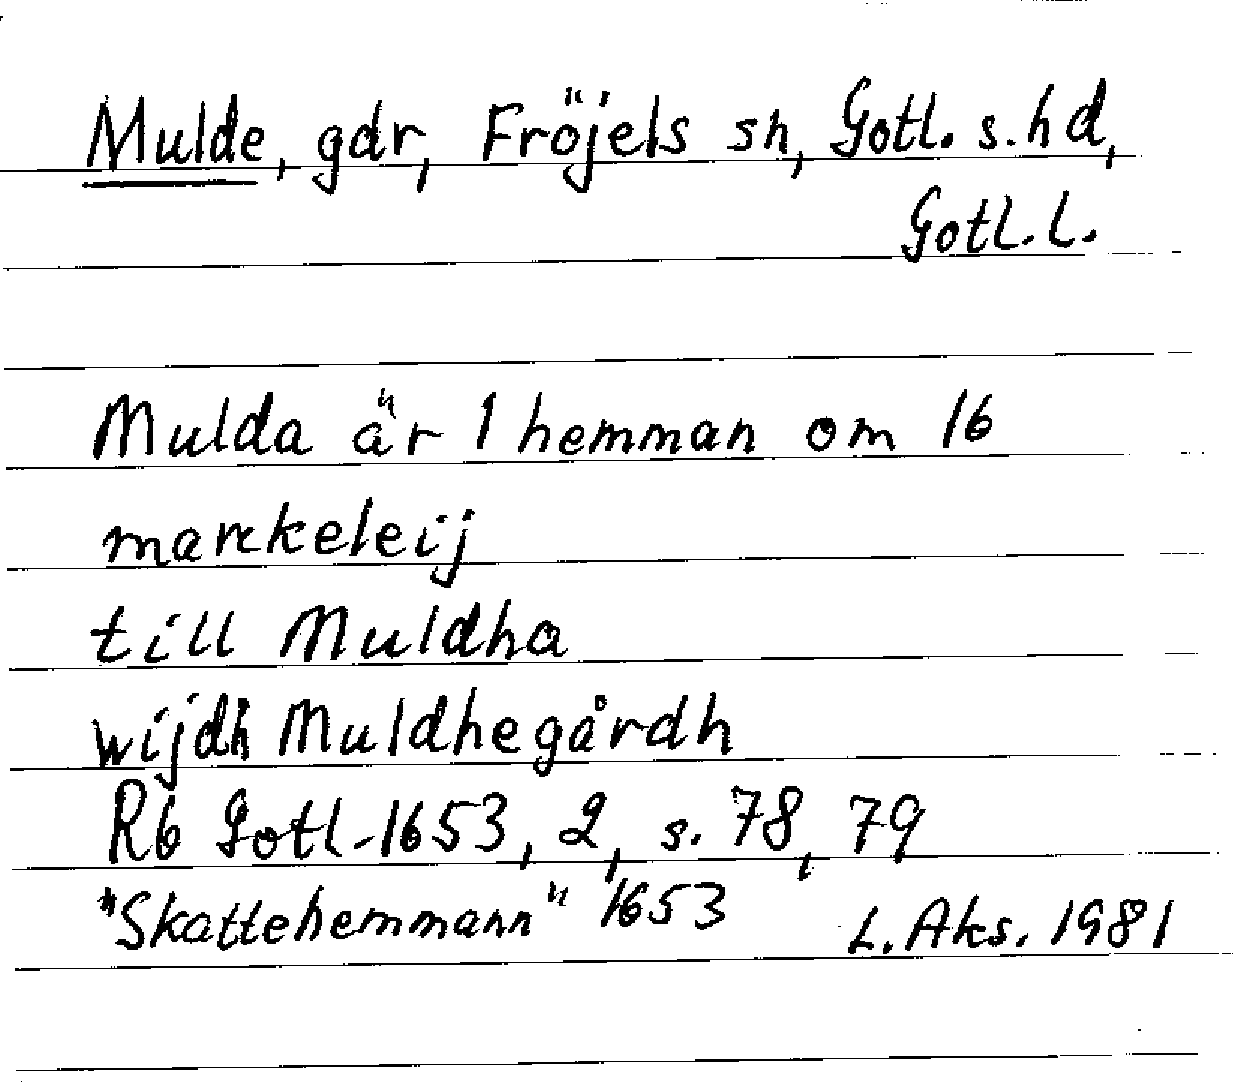 Mulde, gdr, Fröjels sn, Gotl. s. hd,
Gotl. l.
Mulda är 1 hemman om 16
marckeleij
till Muldha
wijdh Muldhegårdh
Rb Gotl-1653, 2, s. 78, 79
"Skattehemmann" 1653 L. Aks. 1981